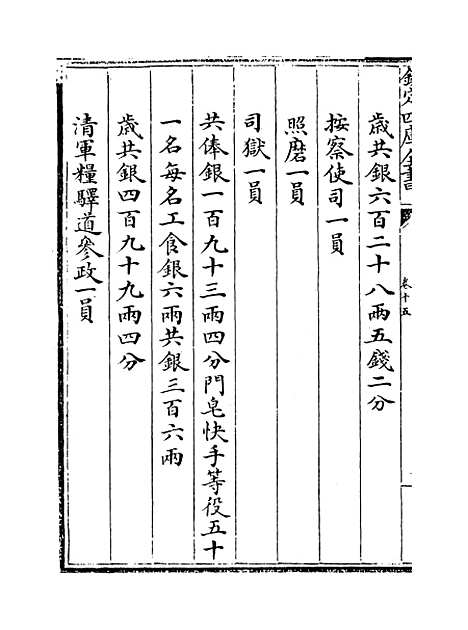 欽定四庫全書
卷十五
歲共銀六百二十八兩五錢二分
按察使司一員
照磨一員
司獄一員
共俸銀一百九十三兩四分門皂快手等役五十
一名每名工食銀六兩共銀三百六兩
歲共銀四百九十九兩四分
清軍糧驛道叅政一員